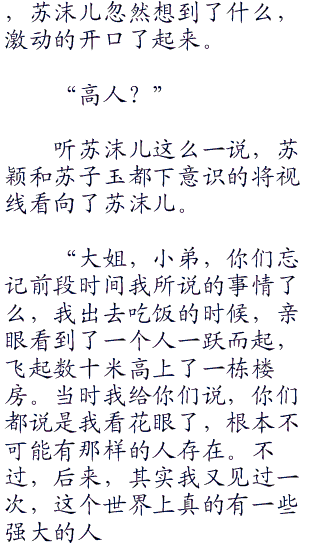 ，苏沫儿忽然想到了什么，
激动的开口了起来。
“高人？”
听苏沫儿这么一说，苏
颖和苏子玉都下意识的将视
线看向了苏沫儿。
“大姐，小弟，你们忘
记前段时间我所说的事情了
么，我出去吃饭的时候，亲
眼看到了一个人一跃而起，
飞起数十米高上了一栋楼
房。当时我给你们说，你们
都说是我看花眼了，根本不
可能有那样的人存在。不
过，后来，其实我又见过一
次，这个世界上真的有一些
强大的人